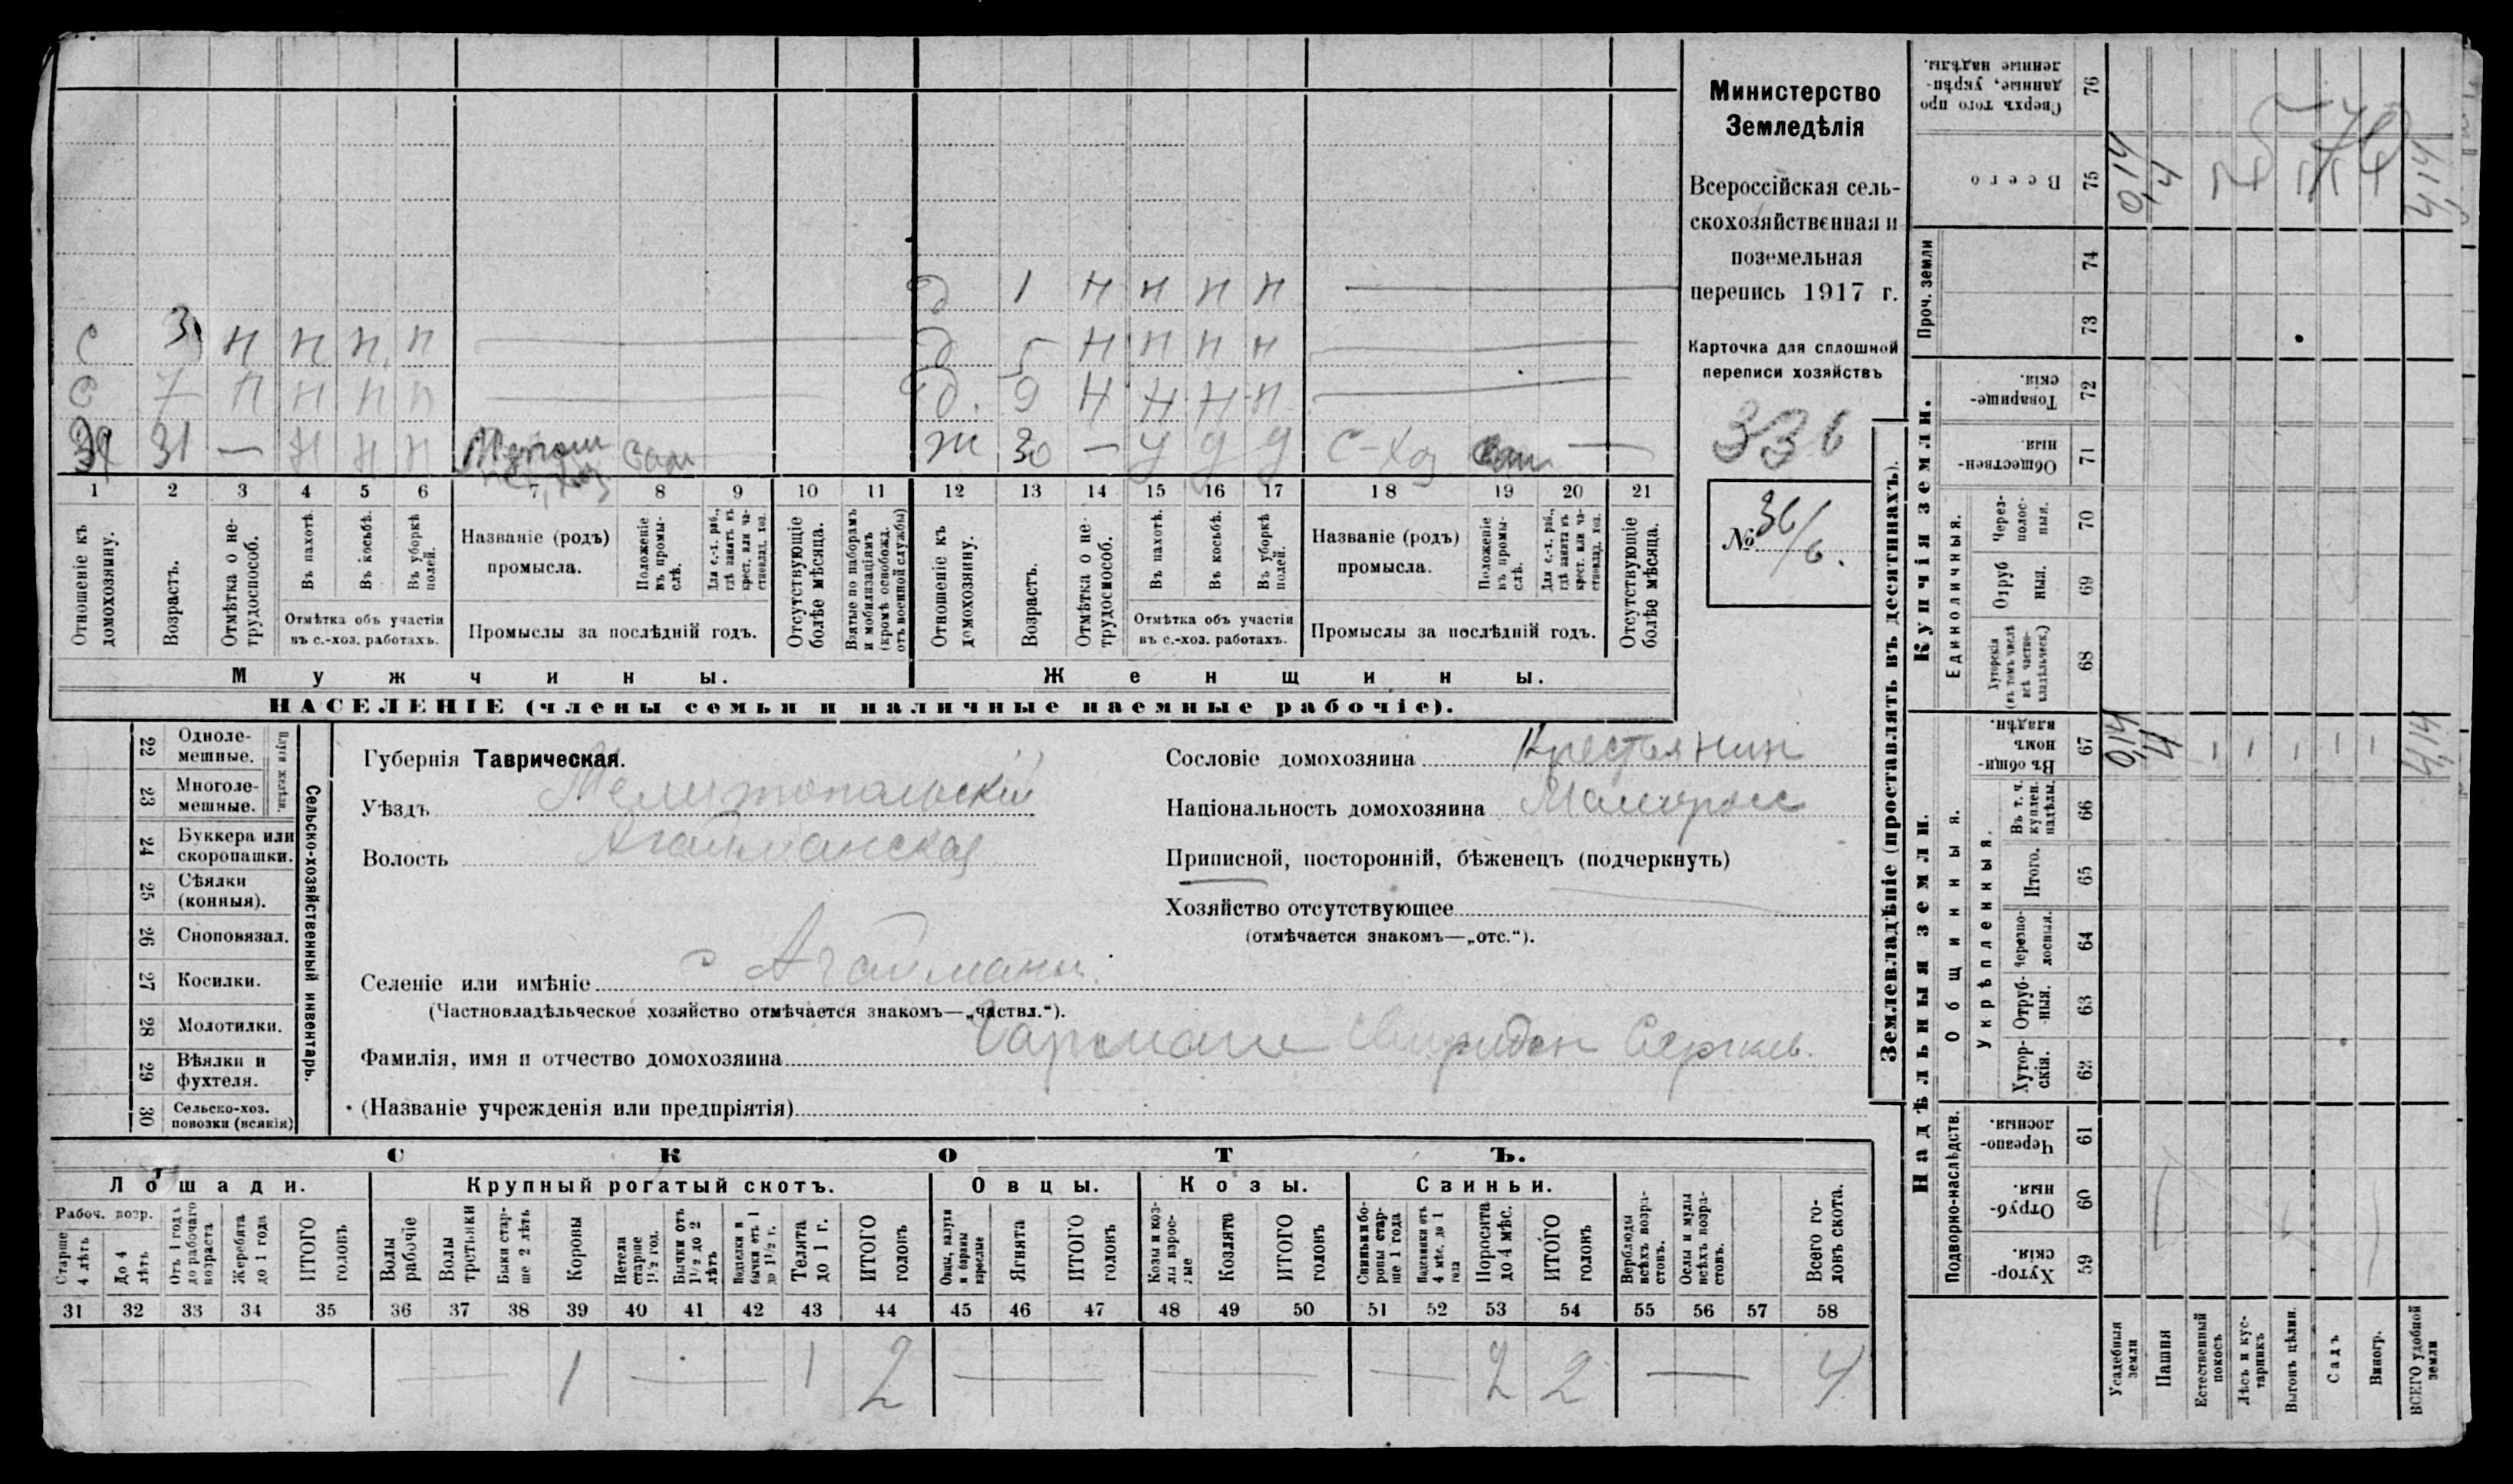 С 3 н н н н
С 7 н н н н
31 — н н н
д 1 н н н н
д 5 н н н н
д. 9 н н н н
ж 30 — у у у с-хоз —
1 2 3 4 5 6 7 8 9 10 11 12 13 14 15 16 17 18 19 20 21
Отношеніе къ домохозяину.
Возрастъ.
Отмѣтка о нетрудоспособ.
Въ пахотѣ.
Въ косьбѣ.
Въ уборкѣ полей.
Отмѣтка объ участіи въ с.-хоз. работахъ.
Названіе (родъ) промысла.
Положеніе въ промыслѣ.
Для с.-х. раб., гдѣ занятъ въ крест. или частновлад. хоз.
Промыслы за послѣдній годъ.
Отсутствующіе болѣе мѣсяца.
Взятые по наборамъ и мобилизаціямъ (кромѣ освобожд. отъ военной службы)
Отношеніе къ домохозяину.
Возрастъ.
Отмѣтка о нетрудоспособ.
Въ пахотѣ.
Въ косьбѣ.
Въ уборкѣ полей.
Отмѣтка объ участіи въ с.-хоз. работахъ.
Названіе (родъ) промысла.
Положеніе въ промыслѣ.
Для с.-х. раб., гдѣ занята въ крест. или частновлад. хоз.
Промыслы за послѣдній годъ.
Отсутствующіе болѣе мѣсяца.
Мужчины.
Женщины.
НАСЕЛЕНІЕ (члены семьи и наличные наемные рабочіе).
Министерство
Земледѣлія
Всероссійская сель-
скохозяйственная и
поземельная
перепись 1917 г.
Карточка для сплошной
переписи хозяйствъ
336
№ 36/6.
22 Одноле-
мешные.
23 Многоле-
мешные.
Плуги желѣзн.
24 Буккера или
скоропашки.
25 Сѣялки
(конныя).
26 Сноповязал.
27 Косилки.
28 Молотилки.
29 Вѣялки и
фухтеля.
30 Сельско-хоз.
повозки (всякія)
Сельско-хозяйственный инвентарь.
Губернія Таврическая.
Уѣздъ Мелитопольскій
Волость Агайманская
Селеніе или имѣніе с Агайманы.
(Частновладѣльческое хозяйство отмѣчается знакомъ—„частвл.“).
Фамилія, имя и отчество домохозяина Свиридон Сергеев.
(Названіе учрежденія или предпріятія)
Сословіе домохозяина Крестьянин
Національность домохозяина Малоросс
Приписной, посторонній, бѣженецъ (подчеркнуть)
Хозяйство отсутствующее
(отмѣчается знакомъ—„отс.“).
СКОТЪ.
Лошади.
Крупный рогатый скотъ.
Овцы.
Козы.
Свиньи.
Рабоч. возр.
Старше 4 лѣтъ
До 4 лѣтъ
Отъ 1 годъ до рабочаго возраста
Жеребята до 1 года
ИТОГО головъ
Волы рабочіе
Волы третьяки
Быки старше 2 лѣтъ
Коровы
Нетели старше 1½ год.
Бычки отъ 1½ до 2 лѣтъ
Подтелки и бычки отъ 1 до 1½ г.
Телята до 1 г.
ИТОГО головъ
Овцы, валухи и бараны взрослые
Ягнята
ИТОГО головъ
Козы и козлы взрослые
Козлята
ИТОГО головъ
Свиньи и боровы старше 1 года
Подсвинки отъ 4 мѣс. до 1 года
Поросята до 4 мѣс.
ИТОГО головъ
Верблюды всѣхъ возрастовъ.
Ослы и мулы всѣхъ возрастовъ.
Всего головъ скота.
31 32 33 34 35 36 37 38 39 40 41 42 43 44 45 46 47 48 49 50 51 52 53 54 55 56 57 58
— — 1 — 1 2 — — — 2 2 — 4
Землевладѣніе (проставлять въ десятинахъ).
Надѣльныя земли.
Купчія земли.
Проч. земли
Подворно-наслѣдств.
Общинныя.
Укрѣпленныя.
Единоличныя.
Сверхъ того проданные, укрѣпленные надѣлы. 76
Всего 75
74
73
Товарищескія. 72
Общественныя. 71
Черезполосныя. 70
Отрубныя. 69
Хуторскія (въ томъ числѣ всѣ частновладѣльческ.) 68
Въ общинномъ владѣн. 67
Въ т. ч. куплен. надѣлы. 66
Итого. 65
Черезполосныя. 64
Отрубныя. 63
Хуторскія. 62
Черезполосныя. 61
Отрубныя. 60
Хуторскія. 59
Усадебныя земли
Пашня
Естественный покосъ
Лѣсъ и кустарникъ
Выгонъ цѣлин.
Садъ
Виногр.
ВСЕГО удобной земли
0,14 4 4,14
0,14 4 — — — — — 4,14